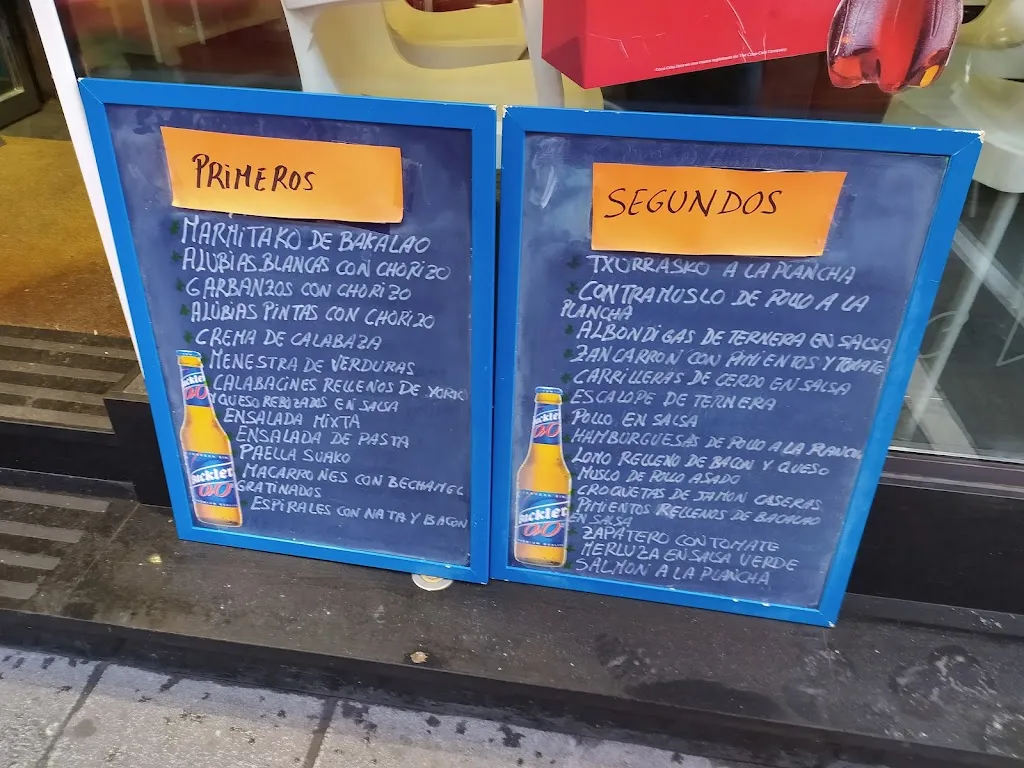 PRIMEROS
MARMITAKO DE BAKALAO
ALUBIAS BLANCAS CON CHORIZO
GARBANZOS CON CHORIZO
ALUBIAS PINTAS CON CHORIZO
CREMA DE CALABAZA
MENESTRA DE VERDURAS
CALABACINES RELLENOS DE YORK
Y QUESO REBOZADOS EN SALSA
ENSALADA MIXTA
ENSALADA DE PASTA
PAELLA SUAKO
MACARRONES CON BECHAMEL
GRATINADOS
ESPIRALES CON NATA Y BACON
Buckler
0,0
Buckler
0,0
SEGUNDOS
TXURRASKO A LA PLANCHA
CONTRAMUSLO DE POLLO A LA
PLANCHA
ALBONDIGAS DE TERNERA EN SALSA
ZANCARRON CON PIMIENTOS Y TOMATE
CARRILLERAS DE CERDO EN SALSA
ESCALOPE DE TERNERA
POLLO EN SALSA
HAMBURGUESAS DE POLLO A LA PLANCHA
LOMO RELLENO DE BACON Y QUESO
MUSLO DE POLLO ASADO
CROQUETAS DE JAMON CASERAS
PIMIENTOS RELLENOS DE BACALAO
EN SALSA
ZAPATERO CON TOMATE
MERLUZA EN SALSA VERDE
SALMON A LA PLANCHA
Buckler
0,0
Buckler
0,0